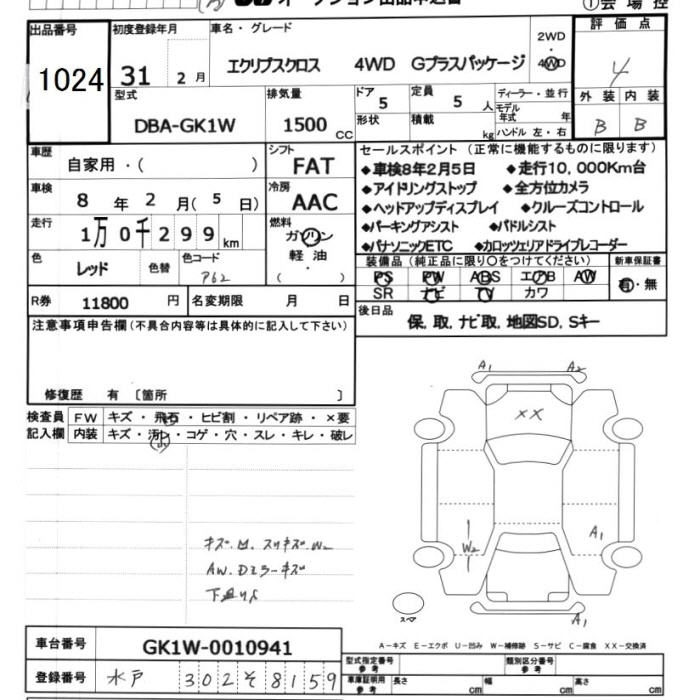 オークション出品申込書
①会場控
出品番号
1024
初度登録年月
31 2月
車名・グレード
エクリプスクロス 4WD Gプラスパッケージ
2WD
・
4WD
評価点
4
外装 内装
B B
型式
DBA-GK1W
排気量
1500 CC
ドア
5
形状
定員
5 人
積載
kg
ディーラー・並行
モデル年式 年
ハンドル 左・右
車歴
自家用・( )
シフト
FAT
車検
8年 2月(5日)
冷房
AAC
走行
1万0千299km
燃料
ガソリン
軽油
・
( )
色
レッド
色替
色コード
P62
R券
11800 円
名変期限 月 日
セールスポイント (正常に機能するものに限ります)
◆車検8年2月5日 ◆走行10,000Km台
◆アイドリングストップ ◆全方位カメラ
◆ヘッドアップディスプレイ ◆クルーズコントロール
◆パーキングアシスト ◆パドルシフト
◆パナソニックETC ◆カロッツェリアドライブレコーダー
装備品(純正品に限り○をつけてください)
PS PW ABS エアB AW
SR ナビ TV カワ
新車保証書
有・無
後日品
保,取,ナビ取,地図SD,Sキー
注意事項申告欄(不具合内容等は具体的に記入して下さい)
修復歴 有 〔箇所 〕
検査員記入欄
FW キズ・飛石・ヒビ割・リペア跡・×要
内装 キズ・汚レ・コゲ・穴・スレ・キレ・破レ
キズ.凹.スリキズW2
AW.Dミラーキズ
下廻りサビ
A1 A2
XX
W2
A1
A1
スペア
A-キズ E-エクボ U-凹み W-補修跡 S-サビ C-腐食 XX-交換済
車台番号
GK1W-0010941
登録番号
水戸 302 そ 8159
型式指定番号
参考
類別区分番号
参考
車庫証明用
参考
長さ cm 幅 cm 高さ cm